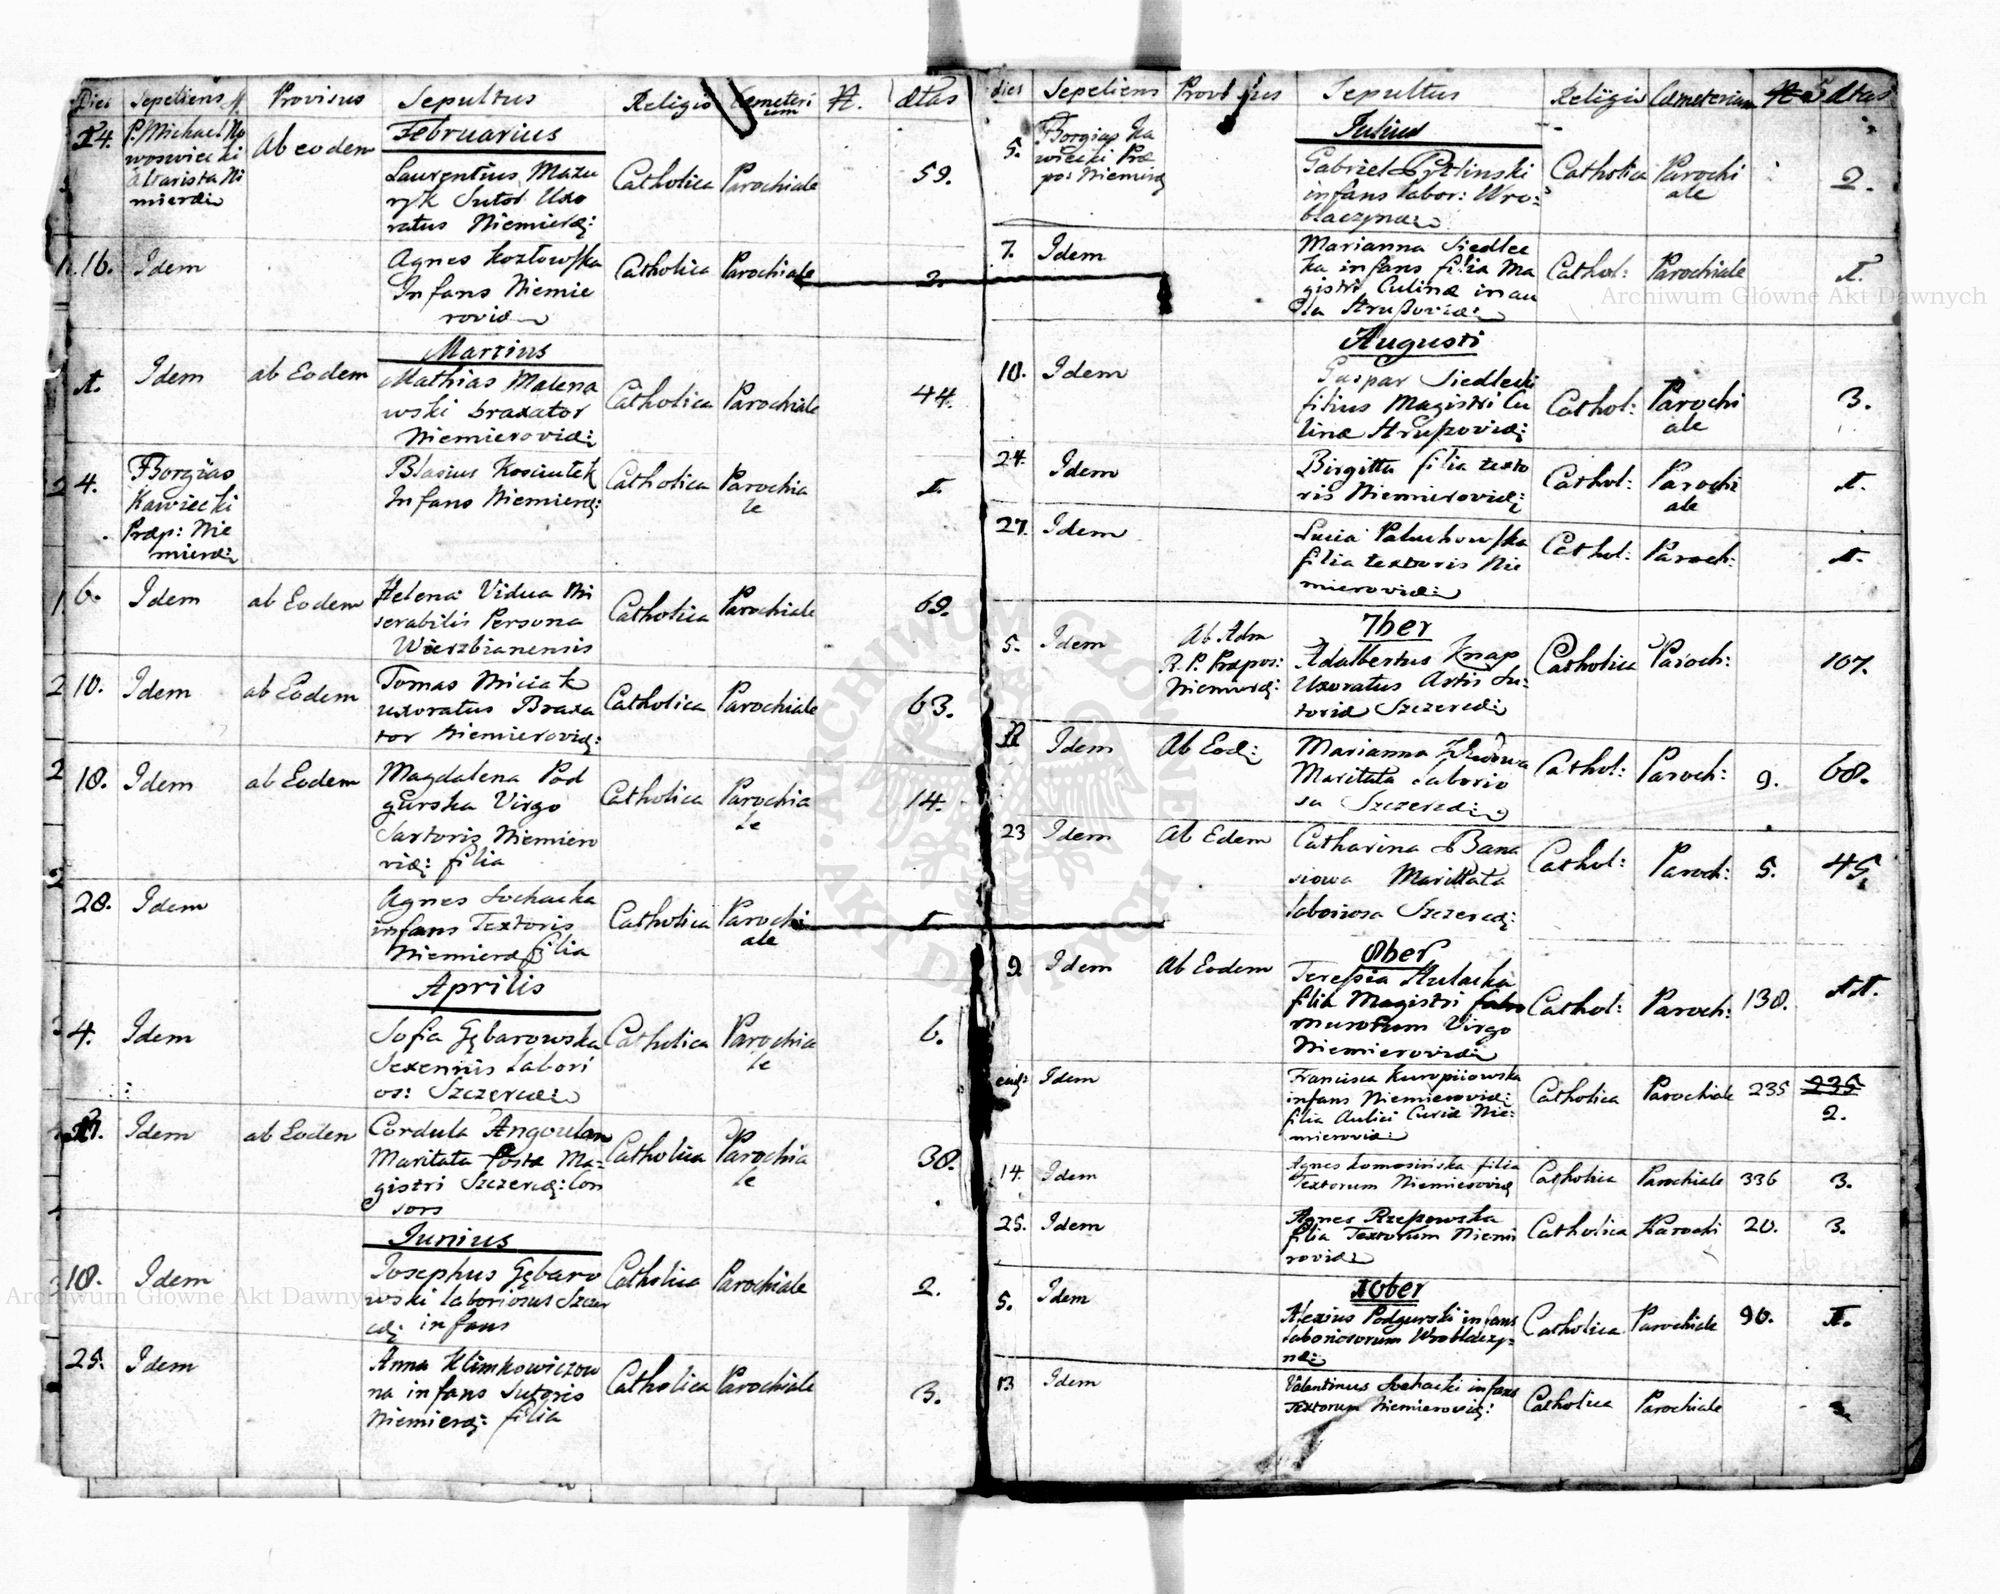 Dies Sepeliens Provisus Sepultus Religio Cemeteri N. Ætas
um
Februarius
24. P. Michael No
wowiecki
Altarista Ni
mieræ:
Ab eodem
Laurentius Mazu
ryk Sutor Uxo
ratus Niemieræ:
Catholica Parochiale 59.
16. Idem
Agnes Kozłowska
Infans Niemie
roviæ
Catholica Parochiale 2.
Martius
1. Idem ab Eodem
Mathias Malena
wski braxator
Niemieroviæ:
Catholica Parochiale 44.
4. Borgias
Kawiecki
Præp: Nie
mieræ:
Blasius Kosciułek
Infans Niemieræ:
Catholica Parochia
le
1.
6. Idem ab Eodem
Helena Vidua Mi
serabilis Persona
Wierzbianensis
Catholica Parochiale 69.
10. Idem ab Eodem
Tomas Miciak
uxoratus Braxa
tor Niemieroviæ:
Catholica Parochiale 63.
18. Idem ab Eodem
Magdalena Pod
gurska Virgo
Sartoris Niemiero
viæ: filia
Catholica Parochia
le
14.
28. Idem
Agnes Sochacka
infans Textoris
Niemieræ filia
Catholica Parochi
ale
1.
Aprilis
4. Idem
Sofia Gębarowska
Sexennis labori
os: Szczercæ:
Catholica Parochia
le
6.
Idem ab Eoden
Cordula Angoulon
Maritata Postæ Ma=
gistri Szczercæ: Con
sors
Catholica Parochia
le
38.
Junius
18. Idem
Josephus Gębaro
wski laboriosus Szczer
cæ: infans
Catholica Parochiale 2.
25. Idem
Anna Klimkowiczow
na infans Sutoris
Niemieræ: filia
Catholica Parochiale 3.
dies Sepeliens Provisus Sepultus Religio Cemeterium Ætas
Julius
5. Borgias Ka
wiecki Præ
pos: Niemieræ
infans labor: Wro=
blaczynæ:
Catholica Parochi
ale
2.
7. Idem
Marianna Siedlec
ka infans filia Ma
gistri Culinæ in au
la Hrußoviæ:
Cathol: Parochiale 1.
Augusti
10. Idem
Gaspar Siedlecki
filius Magistri Cu
linæ Hrußoviæ:
Cathol: Parochi
ale
3.
24. Idem
Birgitta filia texto
ris Niemieroviæ:
Cathol: Parochi
ale
1.
27. Idem
Lucia Paluchowska
filia textoris Nie
mieroviæ:
Cathol: Paroch: 1.
7ber
5. Idem
Ab Adm
R. P. Præpos:
Niemieræ:
Adalbertus Knap
Uxoratus Artis Su=
toriæ Szczercæ:
Catholica Paroch: 107.
Idem Ab Eod:
Marianna
Maritata laborio
sa Szczercæ:
Cathol: Paroch: 9. 68.
23 Idem Ab Edem
Catharina Bana
siowa Marittata
laboriosa Szczercæ:
Cathol: Paroch: 5. 45.
8ber
9. Idem Ab Eodem
Teressia Hulacka
filia Magistri
murorum Virgo
Niemieroviæ:
Cathol: Paroch: 138. 11.
Idem
Francisca Kuropiiowska
infans Niemieroviæ:
filia Aulici Curiæ Nie=
mieroviæ:
Catholica Parochiale 235 235
2.
14. Idem
Agnes Łomosińska filia
Textorum Niemieroviæ
Catholica Parochiale 336 3.
25. Idem
Agnes Rzepowska
filia Textorum Niemi
roviæ:
Catholica Parochi 20. 3.
10ber
5. Idem
Alexius Podgurski infans
laboriosorum Wroblaczy=
næ:
Catholica Parochiale 90. 1.
13 Idem
Valentinus Sochacki infans
textorum Niemieroviæ:
Catholica Parochiale
Archiwum Główne Akt Dawnych
Archiwum Główne Akt Dawnych
ARCHIWUM GŁÓWNE AKT DAWNYCH